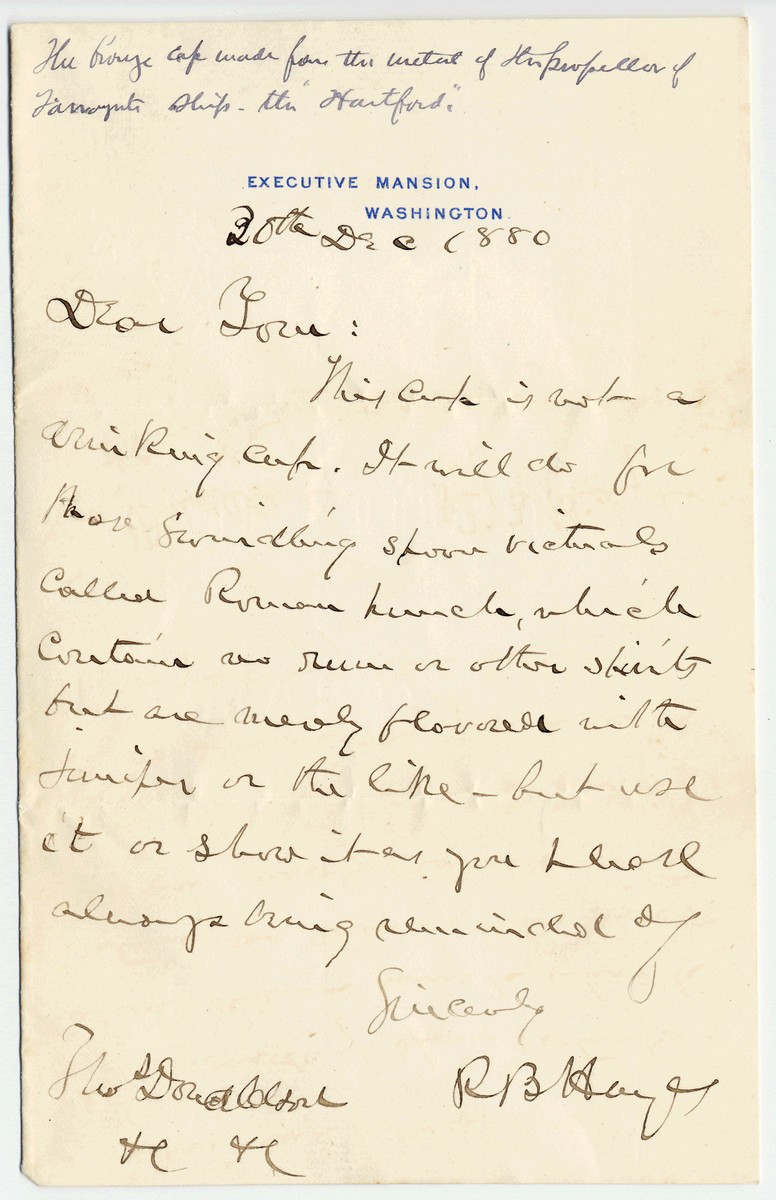 The bronze cup made from the metal of the propellor of
Farraguts ship - the "Hartford."
EXECUTIVE MANSION,
WASHINGTON.
30th Dec 1880
Dear Tom:
This cup is not a
drinking cup. It will do for
those swindling spoon victuals
called Roman punch, which
contain no rum or other spirits
but are merely flavored with
juniper or the like - but use
it or show it as you please
always being reminded of
Sincerely
R B Hayes
Thos Donaldson
&c &c